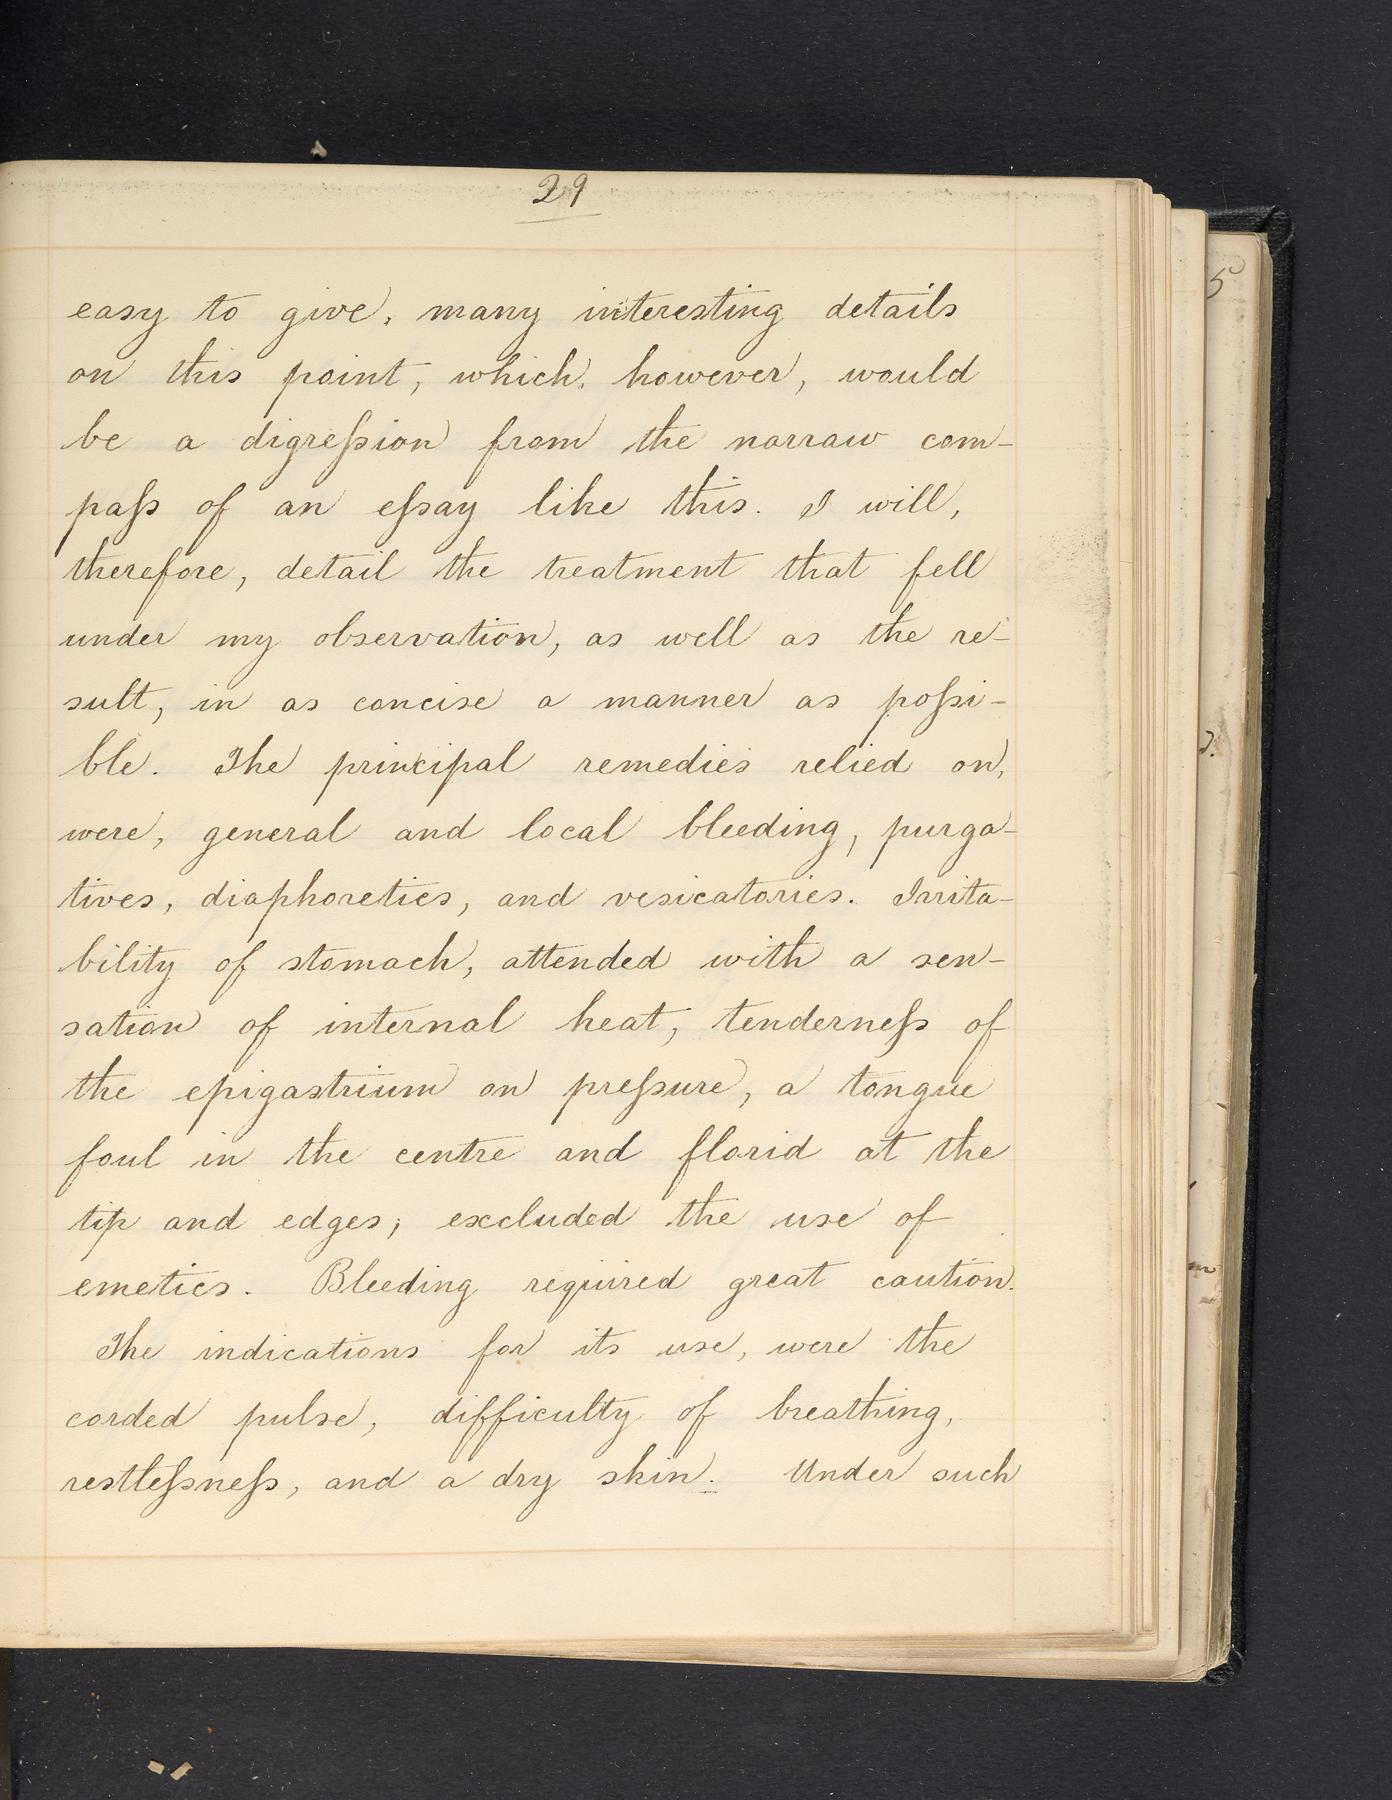 29
easy to give, many interesting details
on this point, which, however, would
be a digreſsion from the narrow com-
paſs of an eſsay like this. I will,
therefore, detail the treatment that fell
under my observation, as well as the re-
sult, in as concise a manner as poſsi-
ble. The principal remedies relied on,
were, general and local bleeding, purga-
tives, diaphoretics, and vesicatories. Irrita-
bility of stomach, attended with a sen-
sation of internal heat, tenderneſs of
the epigastrium on preſsure, a tongue
foul in the centre and florid at the
tip and edges; excluded the use of
emetics. Bleeding required great caution.
The indications for its use, were the
corded pulse, difficulty of breathing,
restleſsneſs, and a dry skin. Under such
5